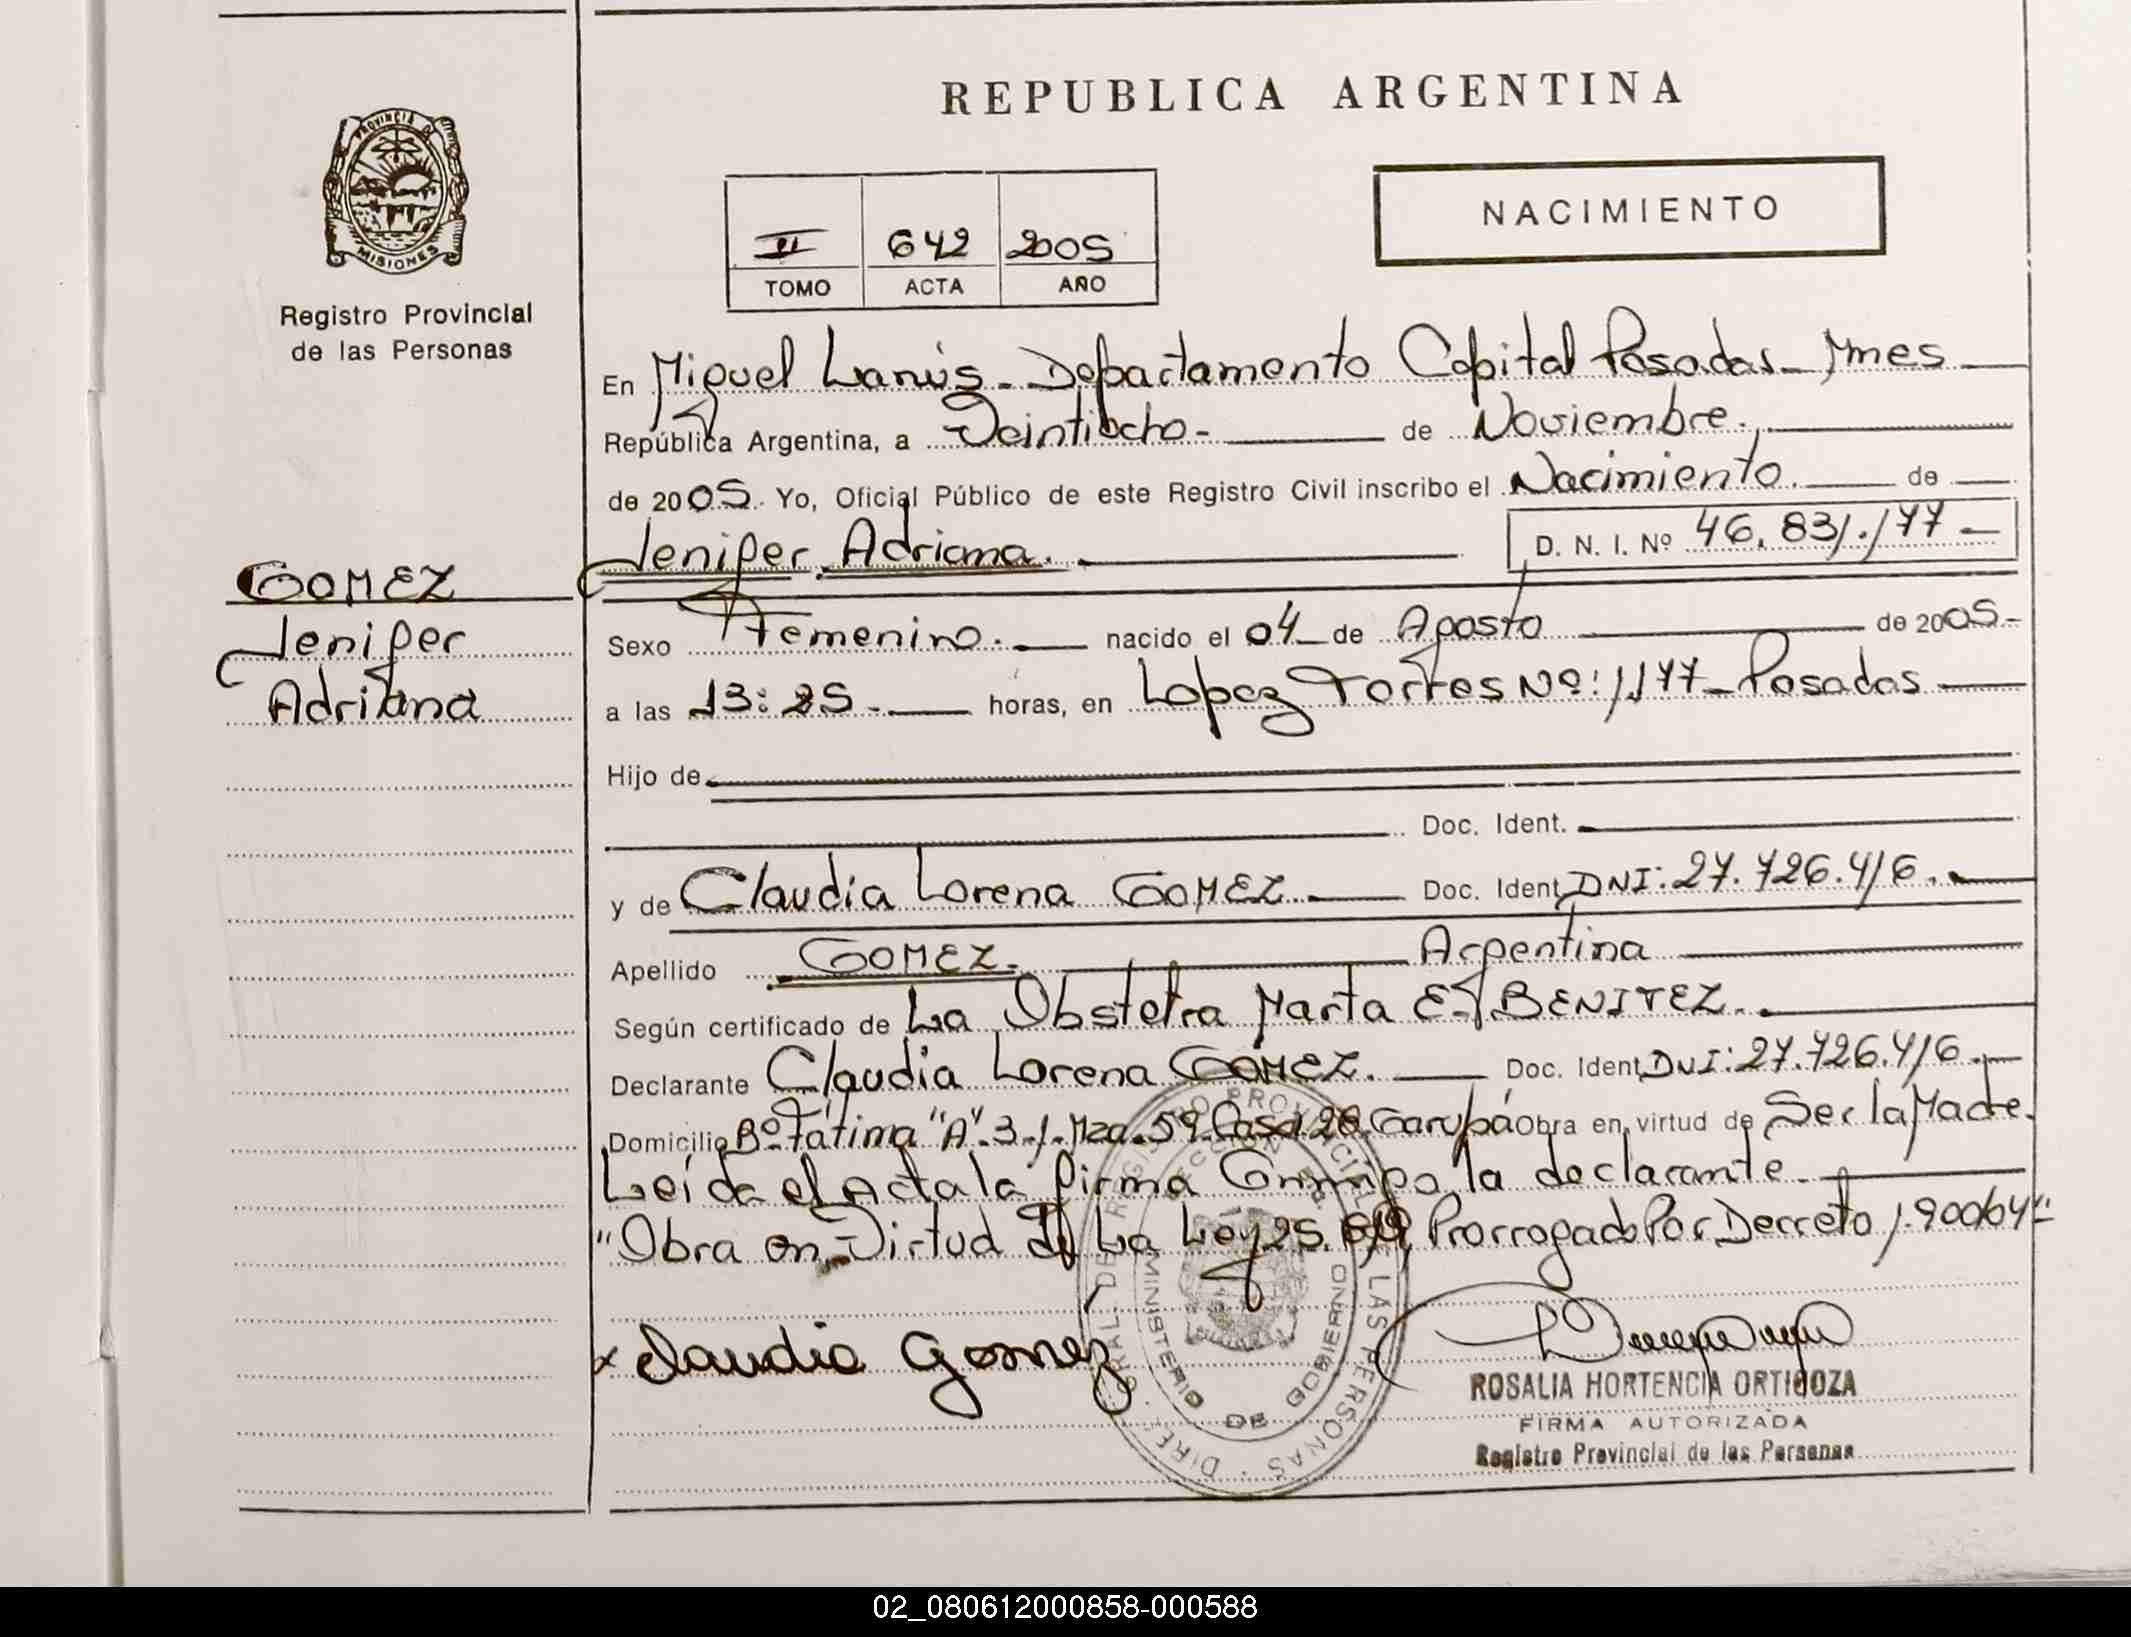 REPUBLICA ARGENTINA
PROVINCIA DE
MISIONES
Registro Provincial
de las Personas
NACIMIENTO
II 642 2005
TOMO ACTA AÑO
En Miguel Lanús - Departamento Capital Posadas - Mnes
República Argentina, a Veintiocho - de Noviembre.
de 2005. Yo, Oficial Público de este Registro Civil inscribo el Nacimiento. de
Jenifer Adriana. D. N. I. Nº 46.831.177 -
GOMEZ
Jenifer
Adriana
Sexo Femenino. nacido el 04 de Agosto de 2005-
a las 13:25 - horas, en Lopez Torres Nº: 1177 - Posadas
Hijo de
Doc. Ident.
y de Claudia Lorena GOMEZ. Doc. Ident. DNI: 27.726.416.
Apellido GOMEZ. Argentina
Según certificado de La Obstetra Marta E. BENITEZ.
Declarante Claudia Lorena GOMEZ. Doc. Ident. DNI: 27.726.416.
Domicilio Bº Fátima "A". 3.1. Mza. 59. Casa 28 Garupá Obra en virtud de Ser la Madre.
Leída el Acta la firma Conmigo la declarante.
"Obra en Virtud de La Ley 25.819 Prorrogado Por Decreto 1.900/04"
Claudia Gomez
DIREC. GRAL. DE REGISTRO PROVINCIAL DE LAS PERSONAS
MINISTERIO DE GOBIERNO
ROSALIA HORTENCIA ORTIGOZA
FIRMA AUTORIZADA
Registro Provincial de las Personas
02_080612000858-000588